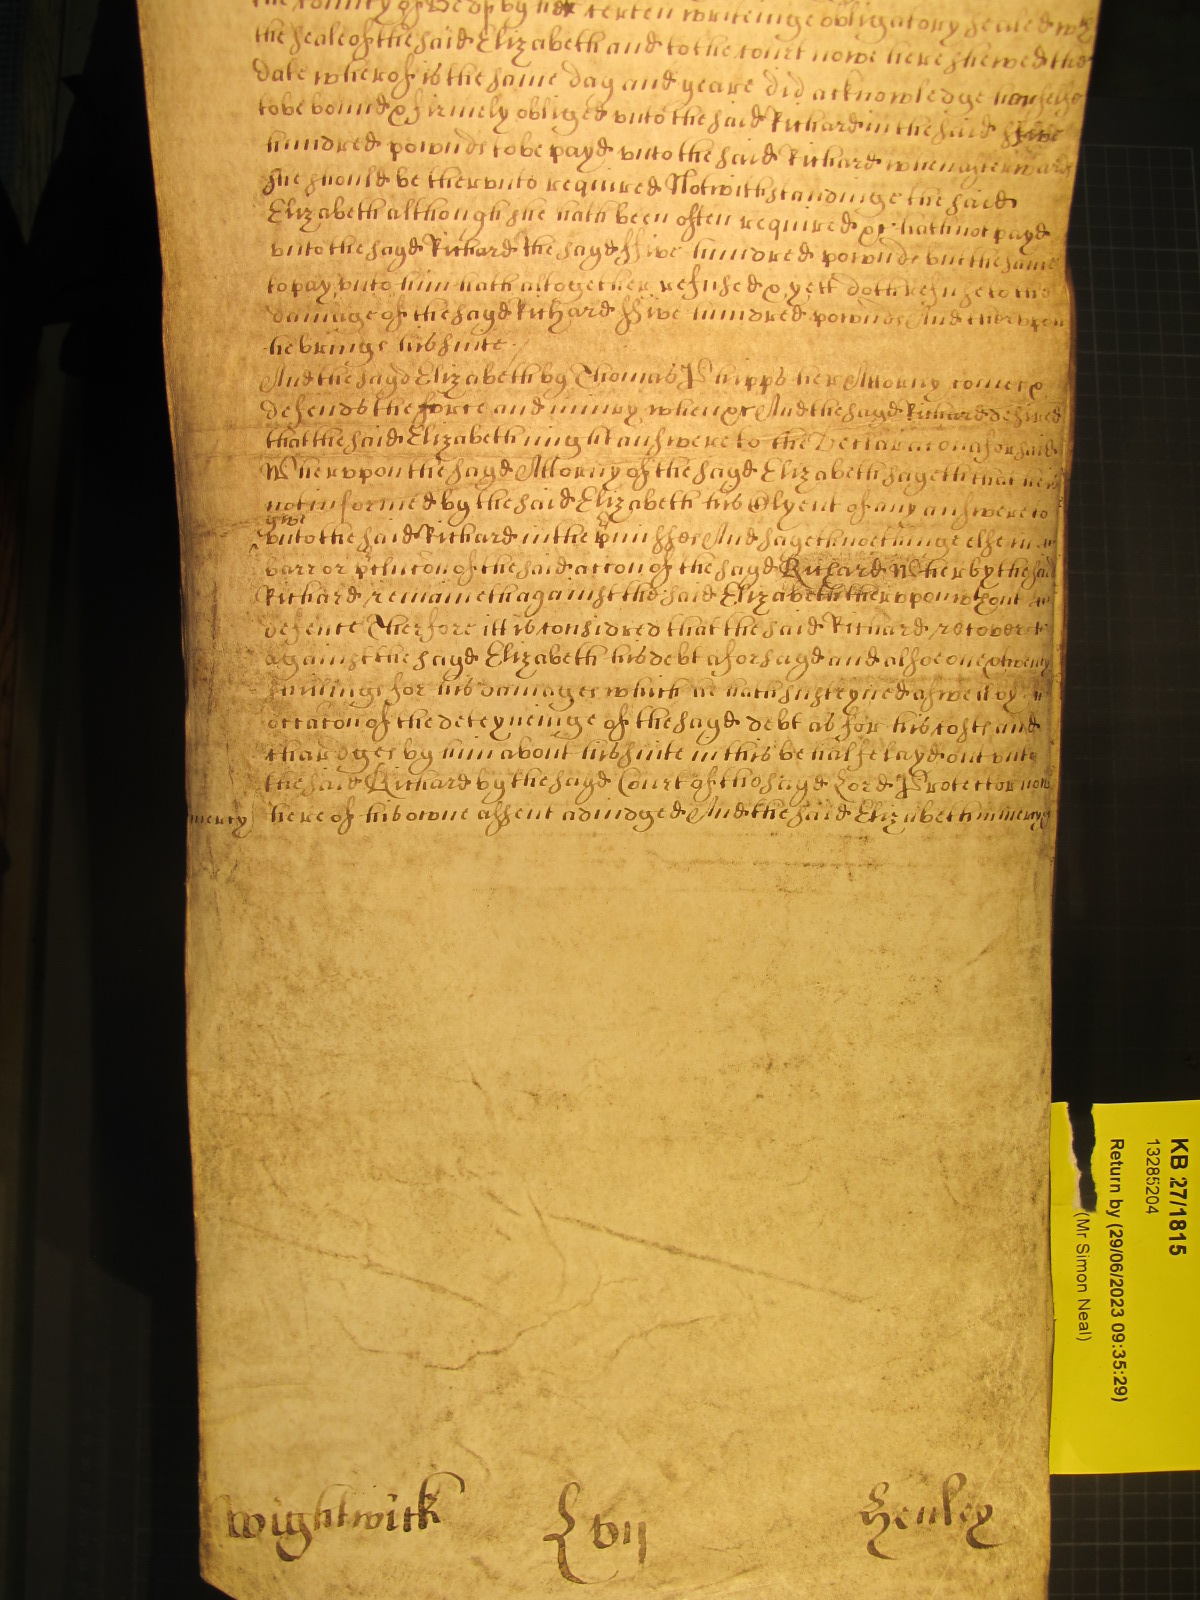 the County of Bedf by her certen writeinge obligatory sealed with
the seale of the said Elizabeth and to the court nowe here shewed the
date wherof is the same day and yeare did acknowledge herselfe
to be bound & firmely obliged vnto the said Richard in the said ffive
hundred pownds to be payd vnto the said Richard when afterwards
she should be thervnto required Notwithstandinge the said
Elizabeth although she hath been often required &c hath not payd
vnto the sayd Richard the sayd ffive hundred pownds but the same
to pay vnto him hath altogether refused & yett doth refuse to the
damage of the sayd Richard ffive hundred pownds And thervpon
he brings his suite
And the sayd Elizabeth by Thomas Phipps her Attorny comes &
defends the force and iniury when &c And the sayd Richard desired
that the said Elizabeth might answere to the Declaracon aforsaid
Whervpon the sayd Attorny of the sayd Elizabeth sayeth that he is
not informed by the said Elizabeth his Clyent of any answere to
give
vnto the said Richard in the pmisses And sayeth noethinge else in
barr or pclucon of the said accon of the sayd Richard Wherby the said
Richard remaineth against the said Elizabeth thervpon wthout
defence Therfore itt is considred that the said Richard recover
against the sayd Elizabeth his debt aforsayd and alsoe one & twenty
shillings for his damages which he hath susteyned aswell by
occacon of the deteyneinge of the sayd debt as for his costs and
chardges by him about his suite in this behalfe layd out vnto
the said Richard by the sayd Court of the sayd Lord Protector now
mercy here of his owne assent adiudged And the said Elizabeth in mercy
Wightwick Lvij Henley
KB 27/1815
13285204
Return by (29/06/2023 09:35:29)
(Mr Simon Neal)